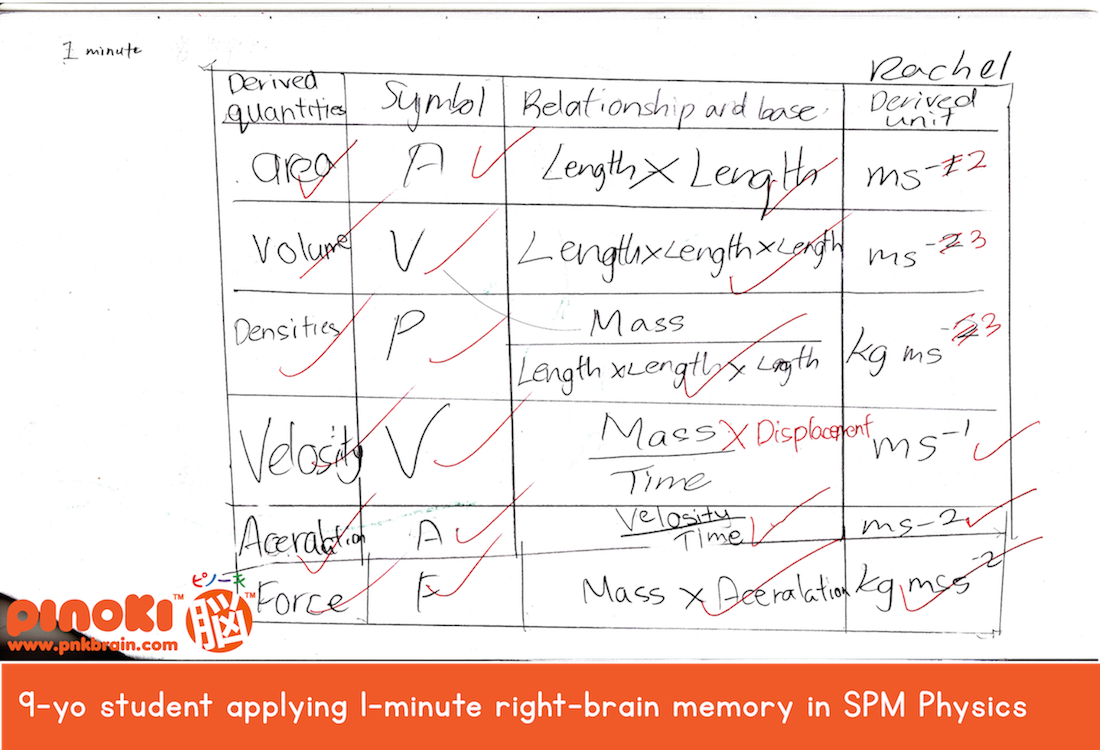 1 minute
Rachel
Derived quantities Symbol Relationship and base Derived unit
area A Length X Length ms⁻ 2
Volume V Length x Length x Length ms⁻ 3
Densities P Mass
Length x Length x Length kg ms⁻ 3
Velosity V Mass X Displacement
Time ms⁻¹
Aceralation A Velosity
Time ms-2
Force F Mass X Aceralation kg mss⁻²
ピノーキ
PINOKI™ 脳™
www.pnkbrain.com
9-yo student applying 1-minute right-brain memory in SPM Physics